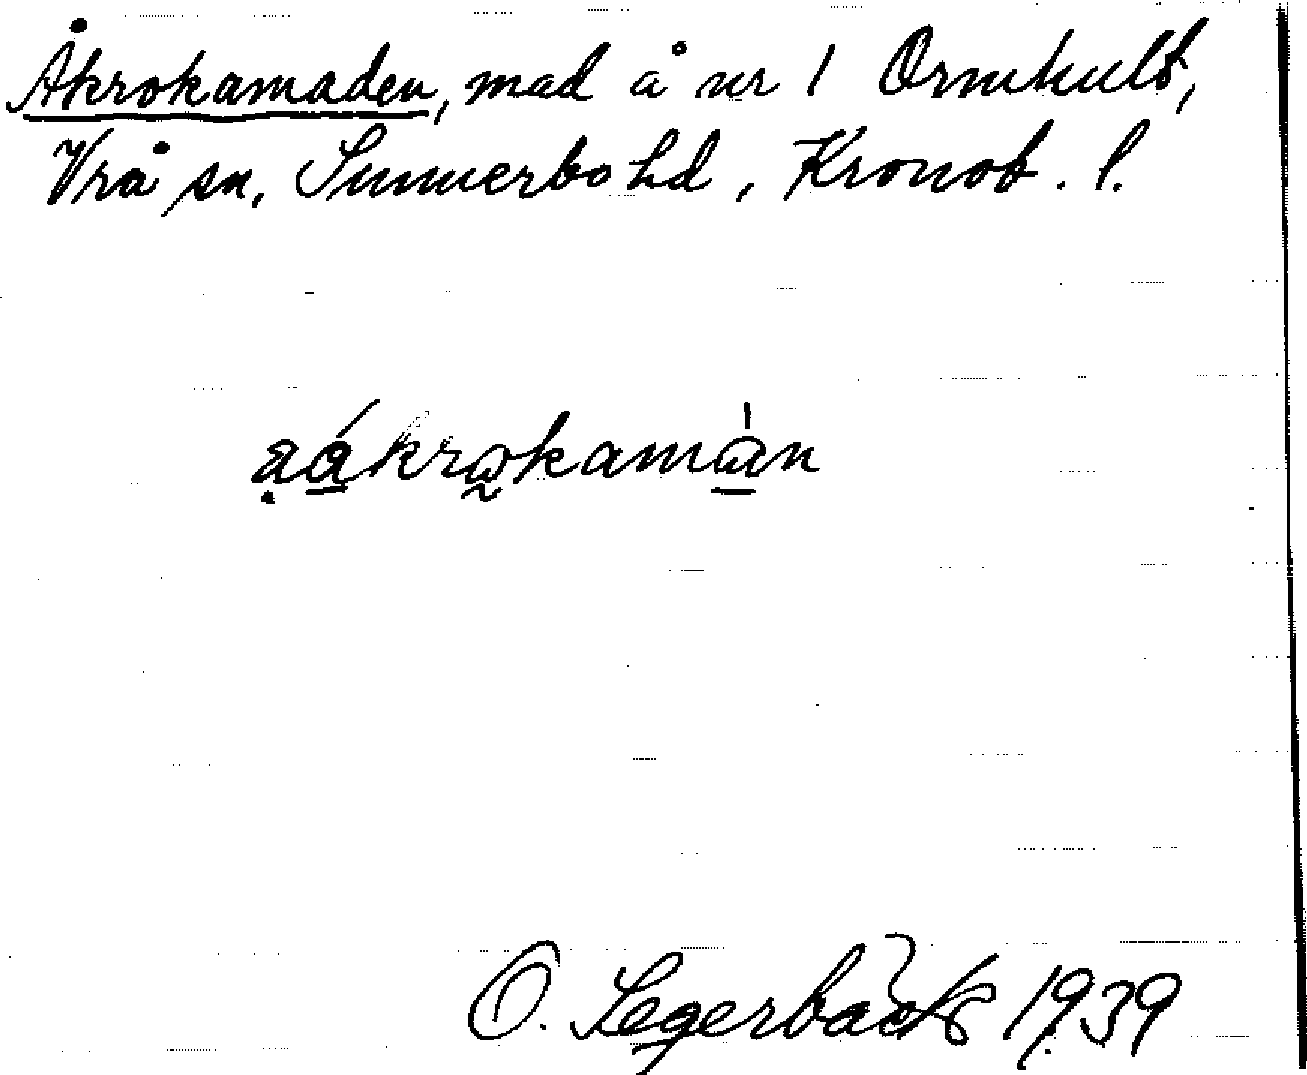 Åkrokamaden, mad å nr 1 Ormhult,
Vrå sn, Sunnerbo hd, Kronob. l.
aákrokamàn
O. Segerbäck 1939